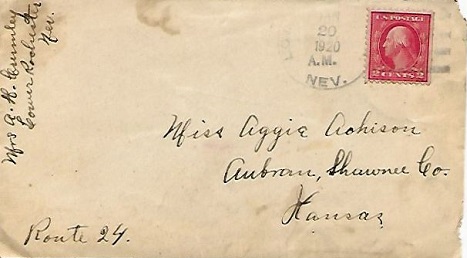 Mrs A. H. Crumley
Lower Rochester
Nev.
20
1920
A.M.
NEV.
U.S. POSTAGE
2 CENTS 2
Miss Aggie Achison
Auburn, Shawnee Co.
Kansas
Route 24.